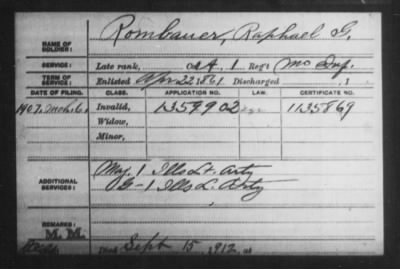 NAME OF SOLDIER: Rombauer, Raphael G.
SERVICE: Late rank, Co. A, 1 Reg't Mo Inf.
TERM OF SERVICE: Enlisted Apr 22 1861, Discharged , 1
DATE OF FILING. CLASS. APPLICATION NO. LAW. CERTIFICATE NO.
1907, Mch. 6. Invalid, 1359902 1135869
Widow,
Minor,
ADDITIONAL SERVICES: Maj. 1 Ills Lt. Arty
G-1 Ills L. Arty
REMARKS:
M. M.
Died Sept 15, 1912, at